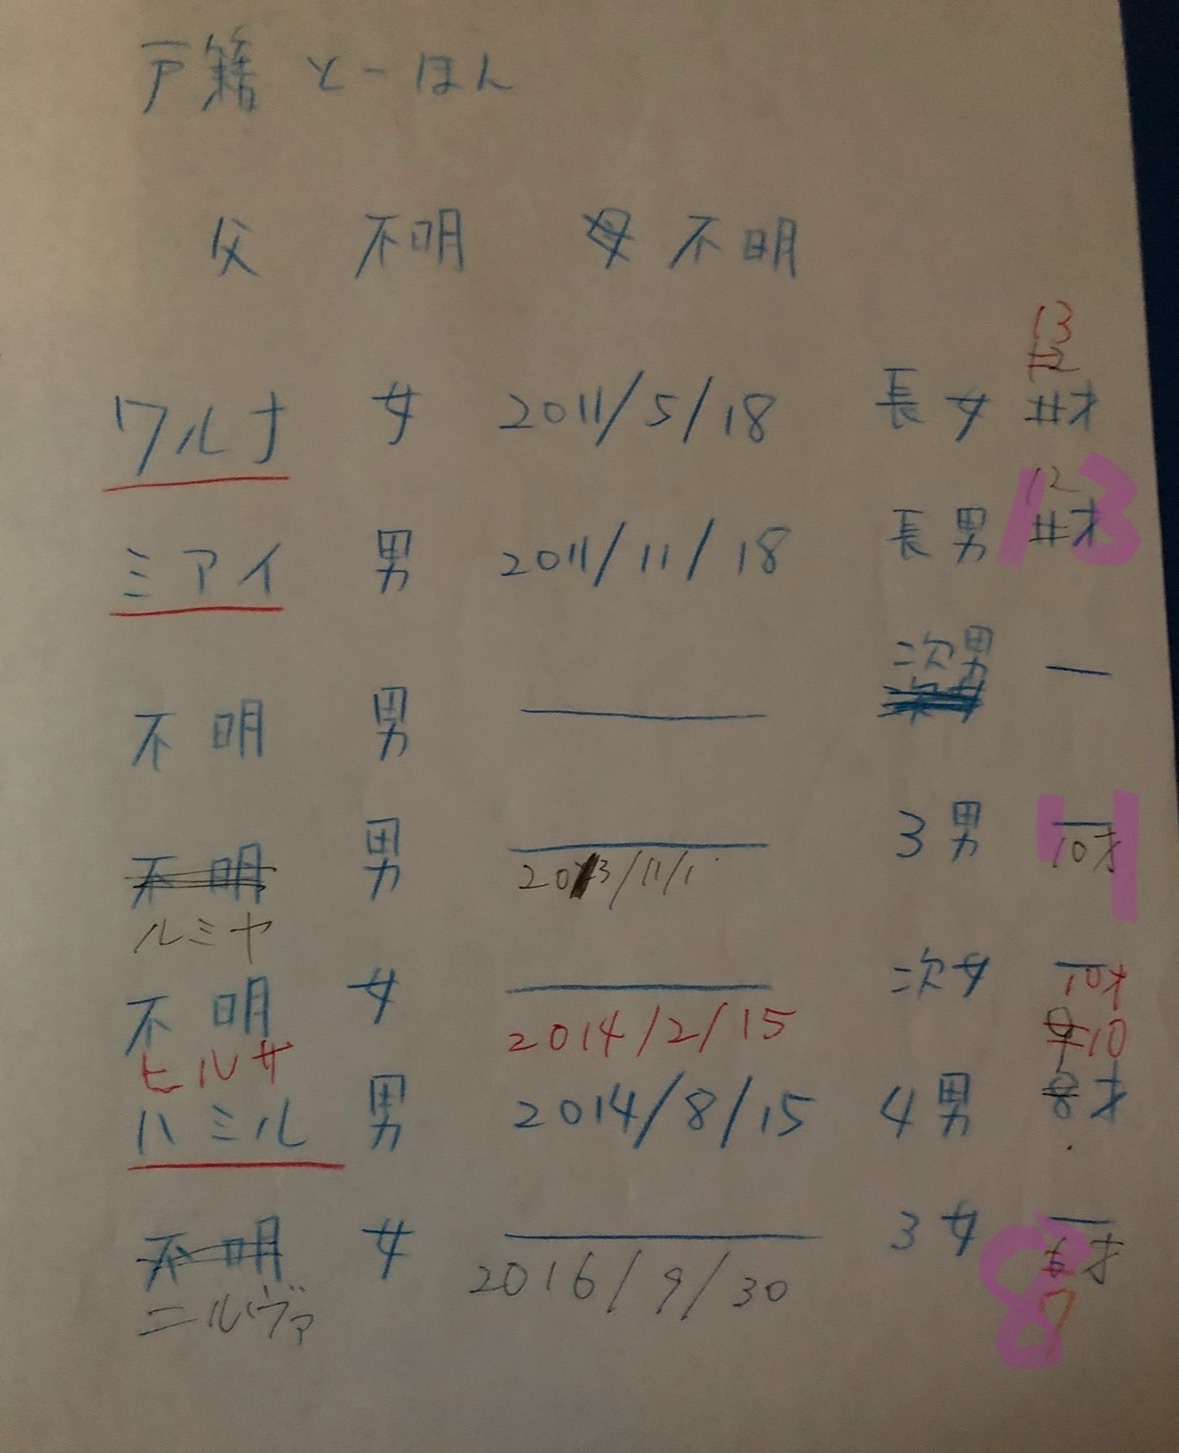 戸籍 とーほん
父 不明 母 不明
13
12
ワルナ 女 2011/5/18 長女 11才
12
ミアイ 男 2011/11/18 長男 11才 13
次男 —
不明 男
3男 11
不明 男 10才
2013/11/1
ルミヤ
次女
不明 女 10才
2014/2/15
ヒルサ 9 10
ハミル 男 2014/8/15 4男 8才
不明 女 3女 6才
2016/9/30 8
ニルヴァ 7